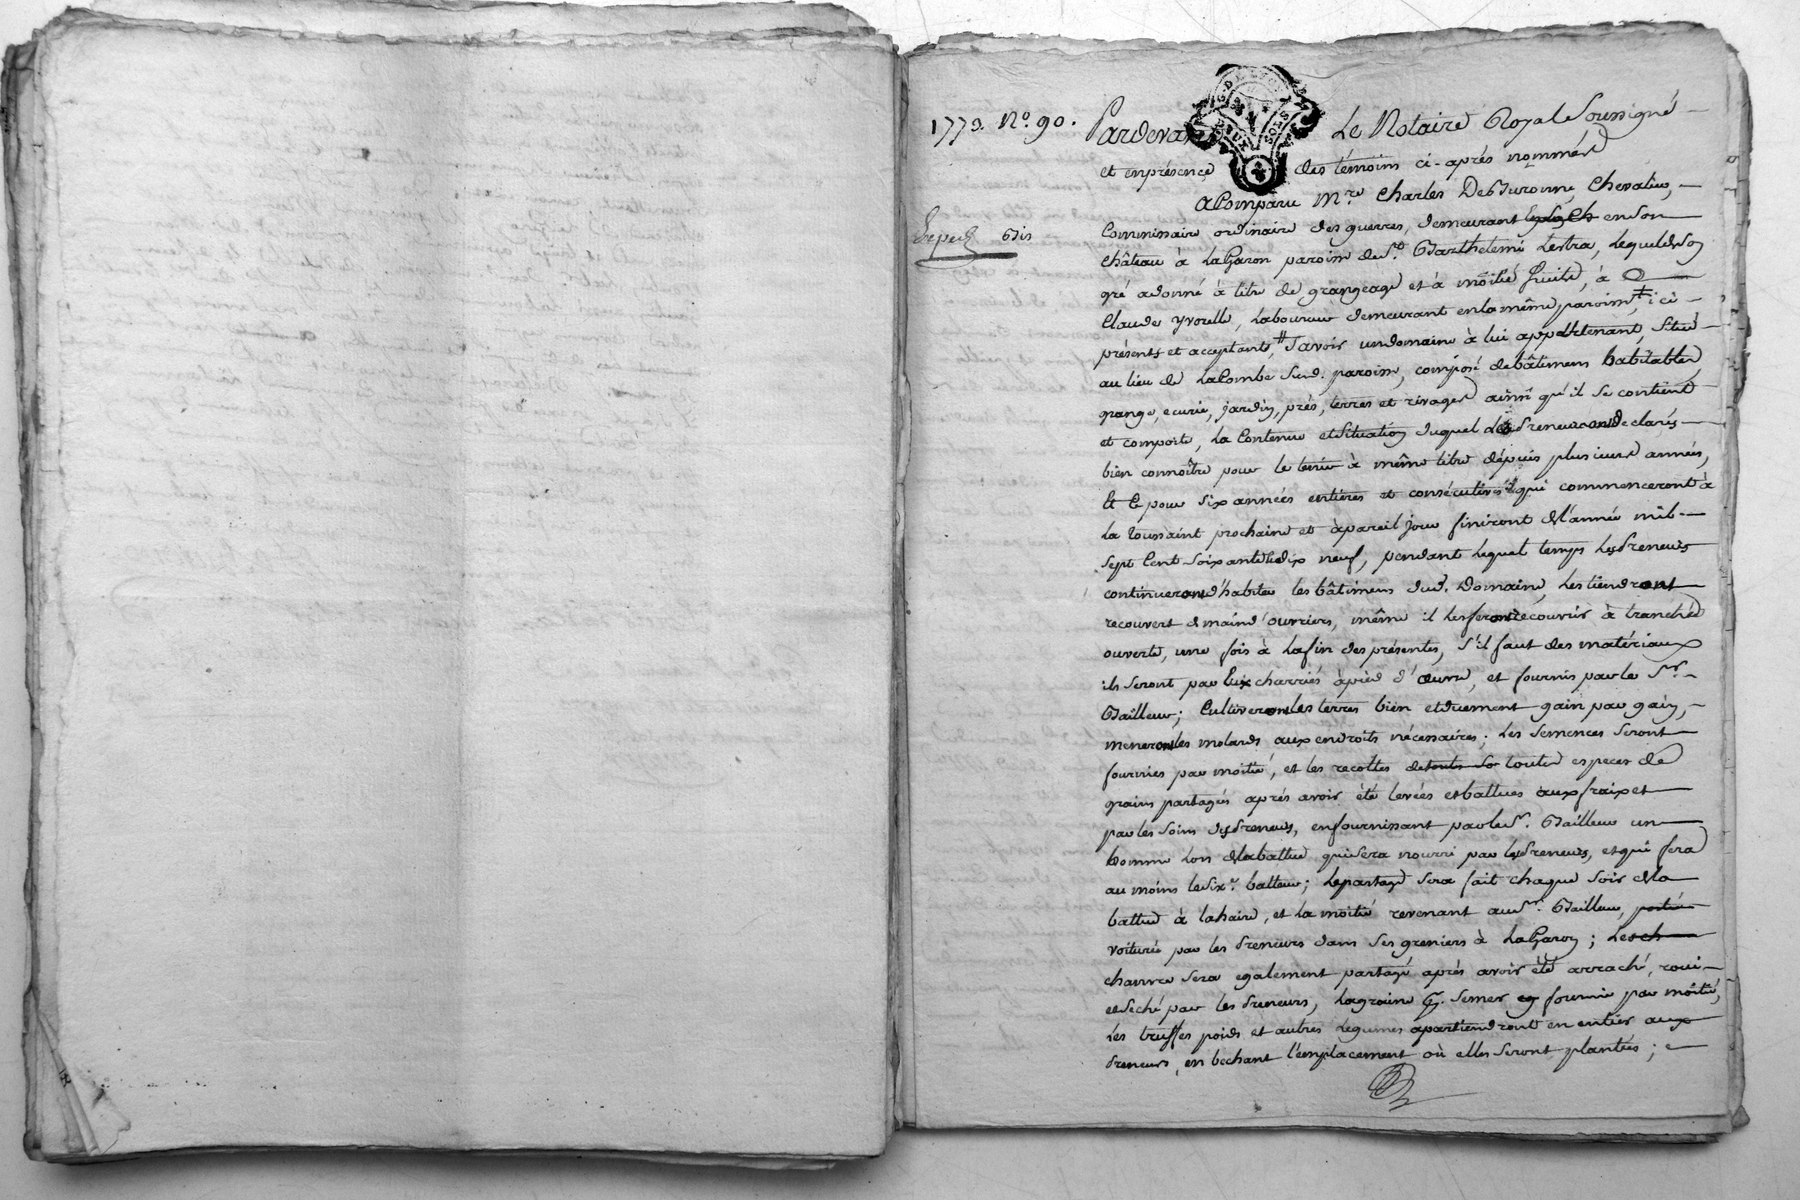 1773. No. 90.
Pardevant Le Notaire Royal Soussigné
et en présence des témoins ci-après nommés
a Comparu Mre Charles De Buronne, Chevalier,
Expedié Bis
Commissaire ordinaire des guerres, demeurant en son
château à La Garon paroisse de St. Barthelemi Lestra, lequel de son
gré a donné à titre de grangeage et à moitié fruits, à
Claude Yvorelle, Laboureur demeurant en la même paroisse, ici
présents et acceptants, Savoir un domaine à lui appartenant, Situé
au lieu de La Combe Sud. paroisse, composé de bâtimens habitables,
grange, ecurie, jardin, prés, terres et rivages ainsi qu'il se contient
et comporte, la Contenue et Situation duquel les Preneurs ont declarés
bien connoître pour le tenir à même titre dépuis plusieurs années,
Et Ce pour six années entières et consécutives qui commenceront à
la Toussaint prochaine et à pareil jour finiront de l'année mil
sept Cent soixante et dix neuf, pendant lequel temps Les Preneurs
continueront d'habiter les bâtimens dud. Domaine, Les tiendront
recouvert de main d'ouvriers, même il les feront recouvrir à tranchée
ouverte, une fois à la fin des présentes, S'il faut des matériaux
ils seront par Eux charriés à pied d'œuvre, et fournis par le Sr.
Bailleur; Cultiveront les terres bien et duement gain par gain,
meneront les molards aux endroits nécessaires; Les semences seront
fournies par moitié, et les recoltes de toutes so toute especes de
grains partagés après avoir été levées et battues aux fraix et
par les soins des Preneurs, en fournissant par le Sr. Bailleur un
homme lors de la battue qui sera nourri par les Preneurs, et qui sera
au moins le Sixe. batteur; le partage sera fait chaque soir de la
battue à l'haire, et la moitié revenant au Sr. Bailleur, portée
voiturée par les Preneurs dans ses greniers à La Garon; Les ch
chanvre sera egalement partagé après avoir été arraché, roui
et seché par les Preneurs, la graine semer fournie par moitié,
Les truffes poids et autres legumes apartiendront en entier aux
Preneurs, en bechant l'emplacement où elles seront plantées;